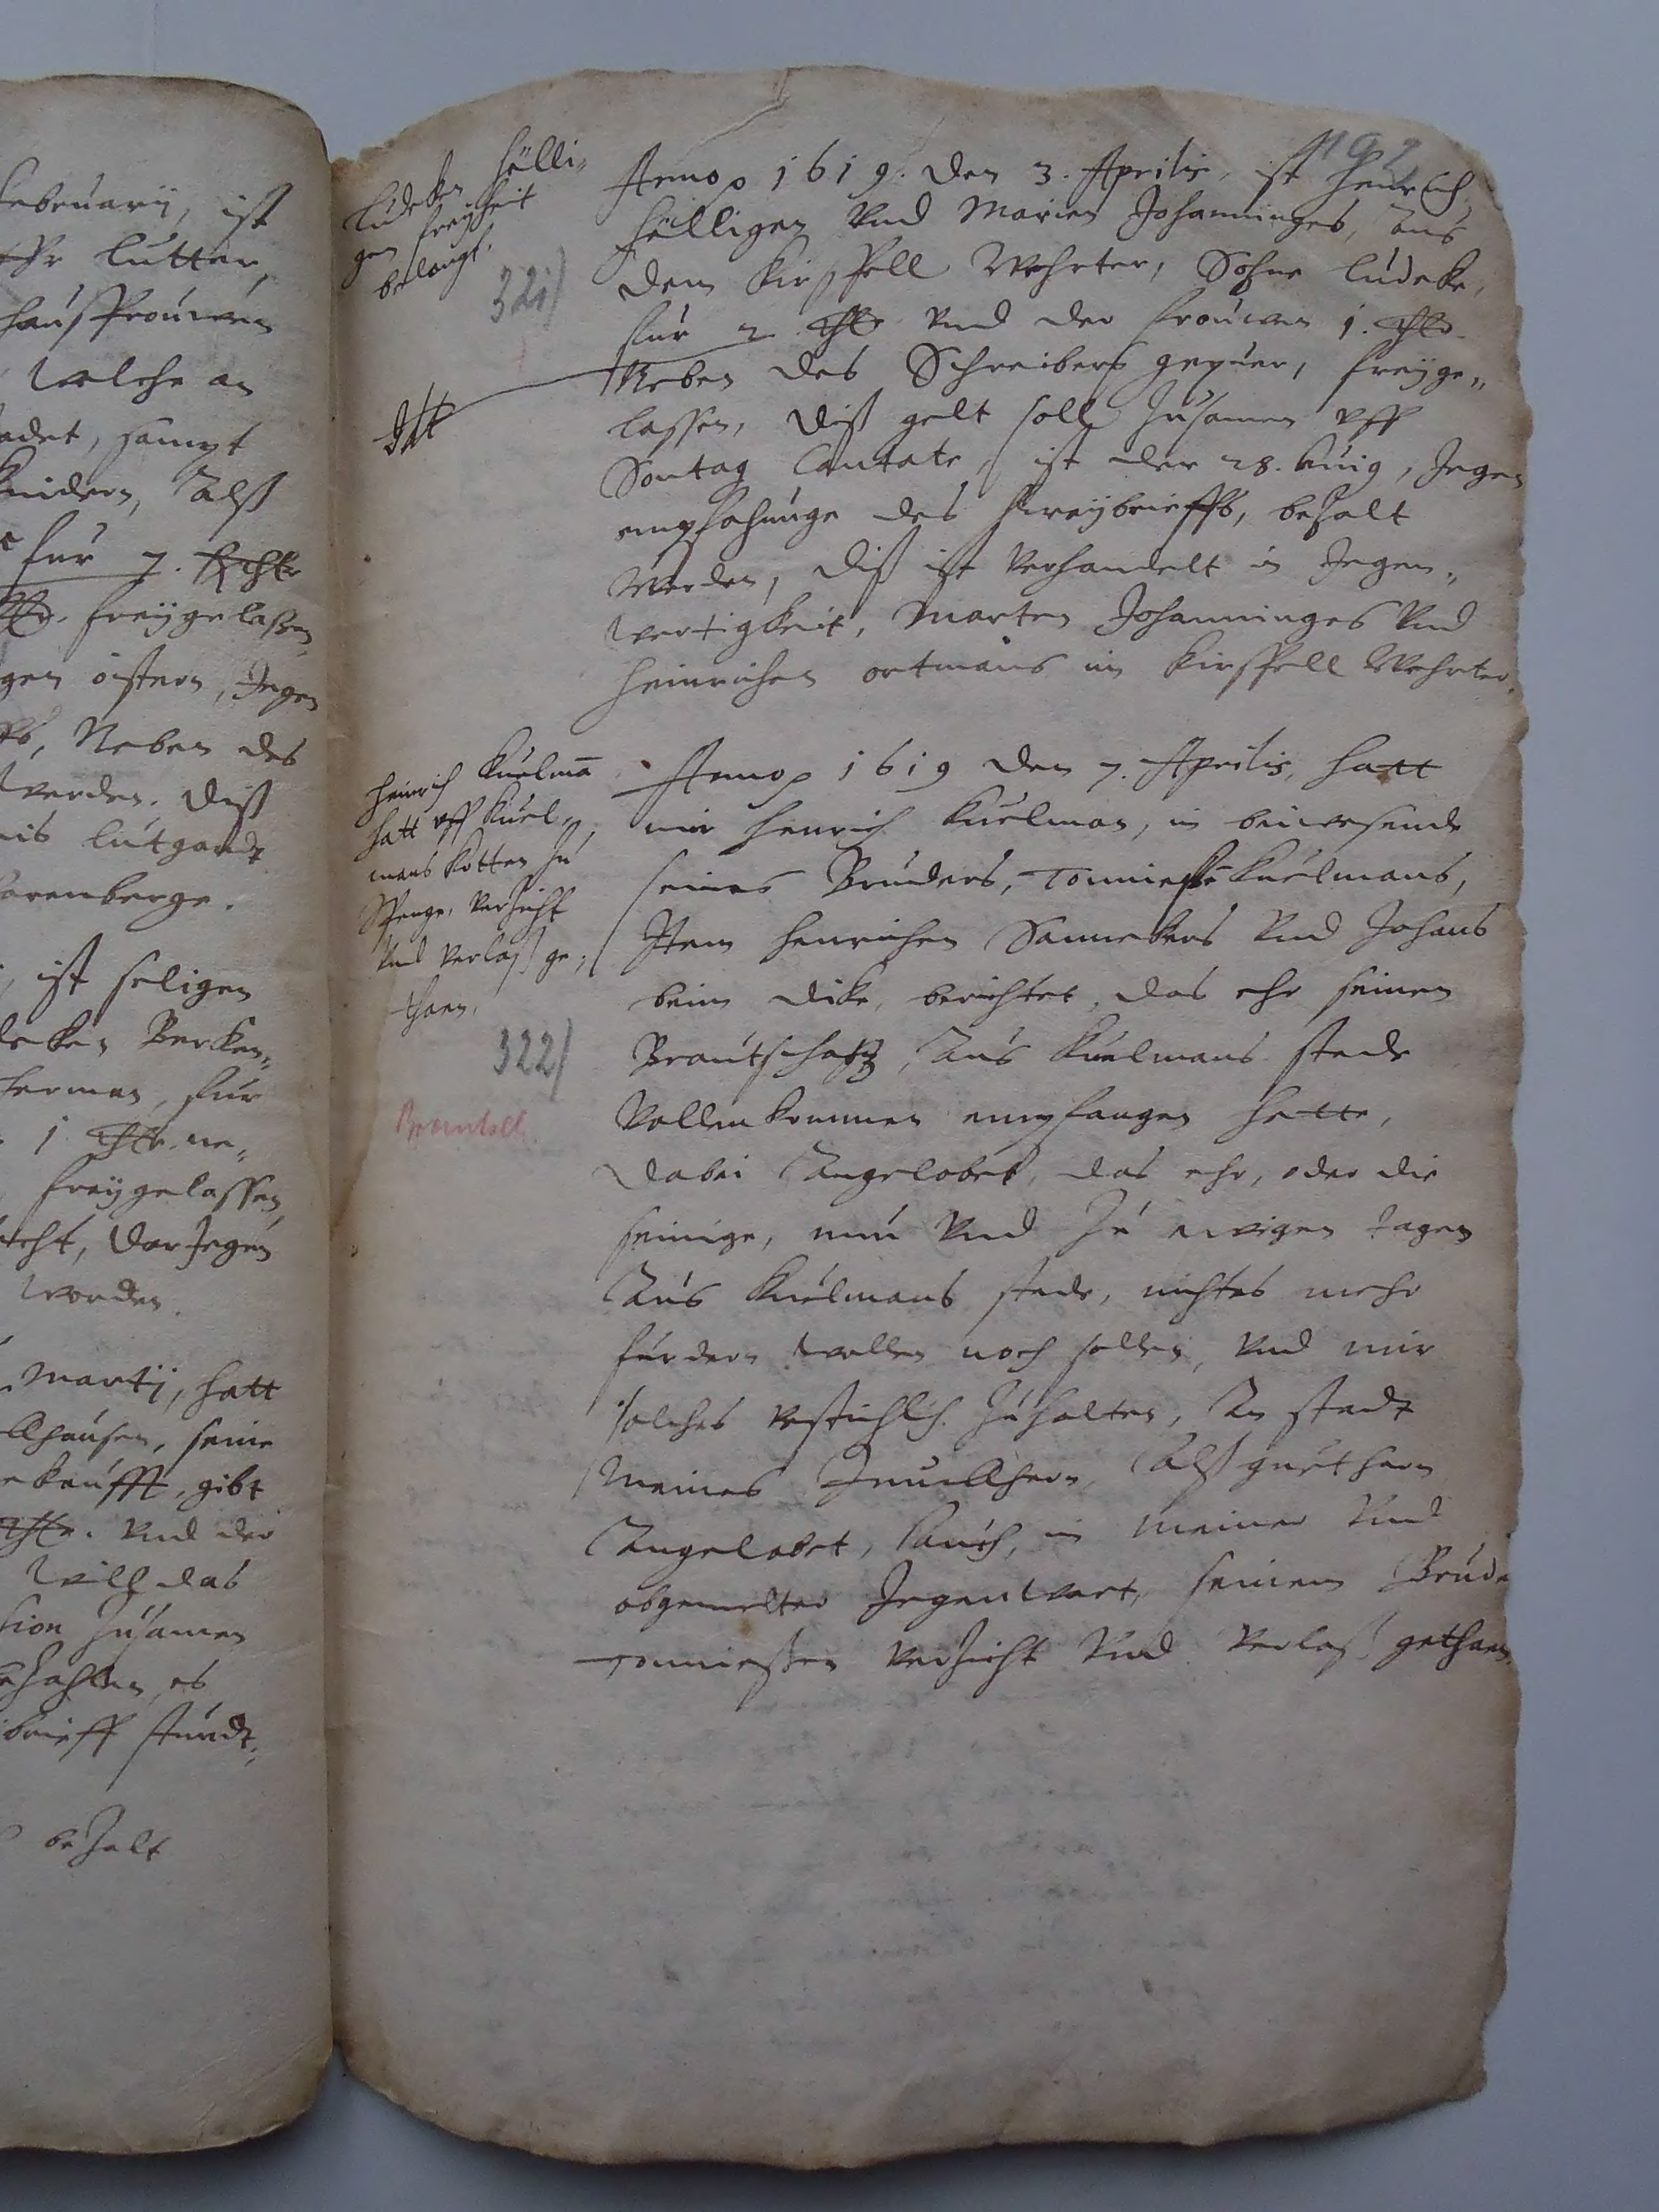 ebruarij, ist
Lutter,
haussfrouwen
welche an
adet, sampt
kindern, Alß
fur 7. Rthlr
freÿgelaßen,
gen östern, Jegen
Neben des
werden. Diß
nis Lutgardt
arenberge.
ist seligen
Berken„
herman, fur
1 thlr. ne„
freÿgelassen,
Darjegen
worden.
Martij, hatt
lhausen, seine
ekaufft, gibt
thlr. Vnd der
will das
sion Zusamen
bezahlen, es
brieff stundt,
bezalt
192
Ludeken Hölli„
gen freyheit
belangt.
321)
Anno 1619. den 3. Aprilis, ist Henrich
Hölligen Vnd Marien Johanninges, Aus
dem Kirspell Wehrter, Sohne Ludeke,
fur 2 thlr Vnd der frouwen 1. thlr.
Neben des Schreibers gepuer, freÿge„
lassen, diß gelt soll Zusamen vff
Sontag Cantate, ist der 28. huig, Jegen
empfahunge des freÿbrieffs, bezalt
Werden, diß ist Verhandelt in Jegen„
wertigkeit, Marten Johanninges Vnd
Heinrichen Ortmans im Kirspell Wehrter.
Heinrich Kuelman
hatt vff Kuel„
mans Kotten zu
Spenge, Verzicht
Vnd Verlaß ge„
thaen.
322)
Anno 1619 den 7. Aprilis, hatt
mir Henrich Kuelman, in beiwesende
seines Bruders, Tonnieße Kuelmans,
Item Henrichen Sannekers Vnd Johans
beim Dike, berichtet, das ehr seinen
Brautschatz, Aus Kuelmans stede
Vollenkommen empfangen hette,
dabei Angelobet, das ehr, oder die
seinige, nun Vnd Zu ewigen tagen
Aus Kuelmans stede, nichtes mehr
furdern wollen noch sollen, Vnd mir
solches vestichlich Zuhalten, An stadt
Meines Junckhern, Alß guethern
Angelobet, Auch, in meiner Vnd
obgemelter Jegenwart, seinem Brude
Tonnießen Verzicht Vnd Verlaß gethaen.